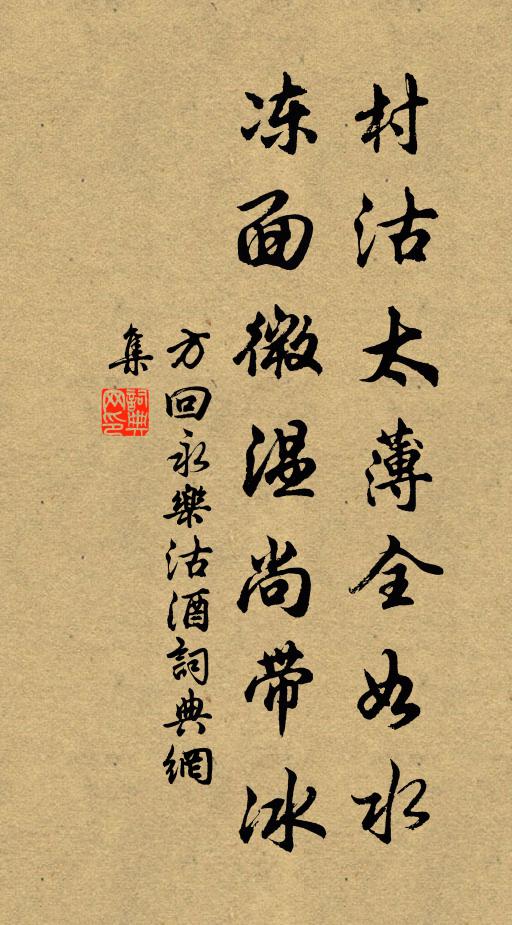 村沽太薄全如水
冻面微温尚带冰
方回永樂沽酒詞典網
集
詞典網印